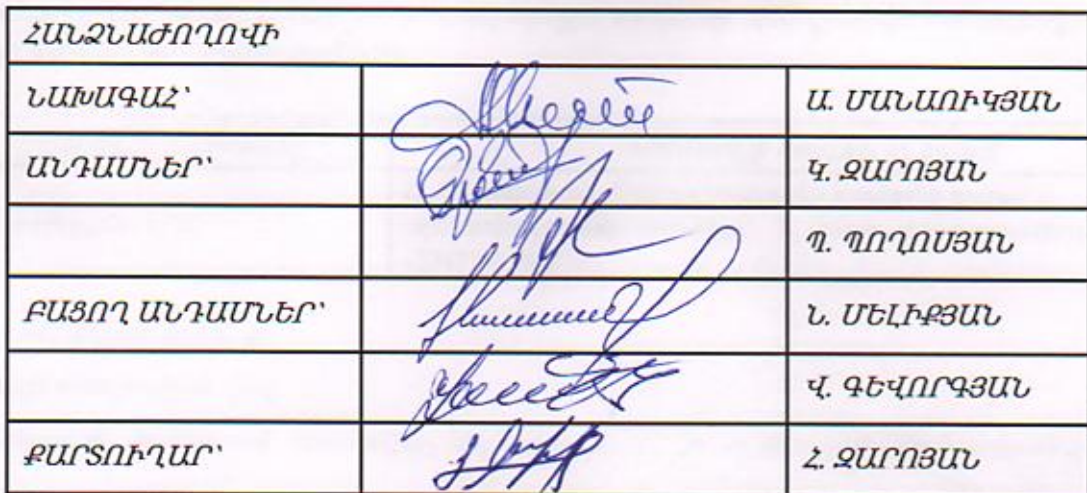 ՀԱՆՁՆԱԺՈՂՈՎԻ
ՆԱԽԱԳԱՀ՝ Ա. ՄԱՆԱՈՒԿՅԱՆ
ԱՆԴԱՄՆԵՐ՝ Կ. ԶԱՐՈՅԱՆ
Պ. ՊՈՂՈՍՅԱՆ
ԲԱՑՈՂ ԱՆԴԱՄՆԵՐ՝ Ն. ՄԵԼԻՔՅԱՆ
Վ. ԳԵՎՈՐԳՅԱՆ
ՔԱՐՏՈՒՂԱՐ՝ Հ. ԶԱՐՈՅԱՆ